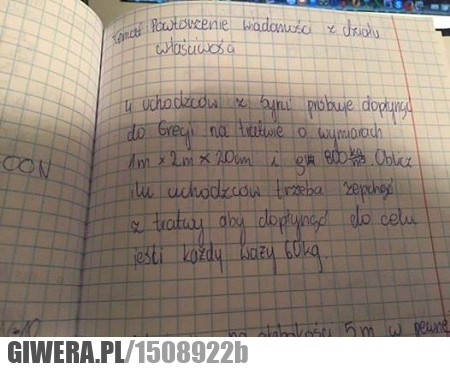 Temat Powtórzenie wiadomości z działu
właściwości
4 uchodźców z Syrii próbuje dopłynąć
do Grecji na tratwie o wymiarach
1m × 2m × 20cm i g 800 Oblicz
ilu uchodźców trzeba zepchnąć
z tratwy aby dopłynąć do celu
jeśli każdy waży 60kg.
CON
na głębokości 5m w pewnej
GIWERA.PL/1508922b